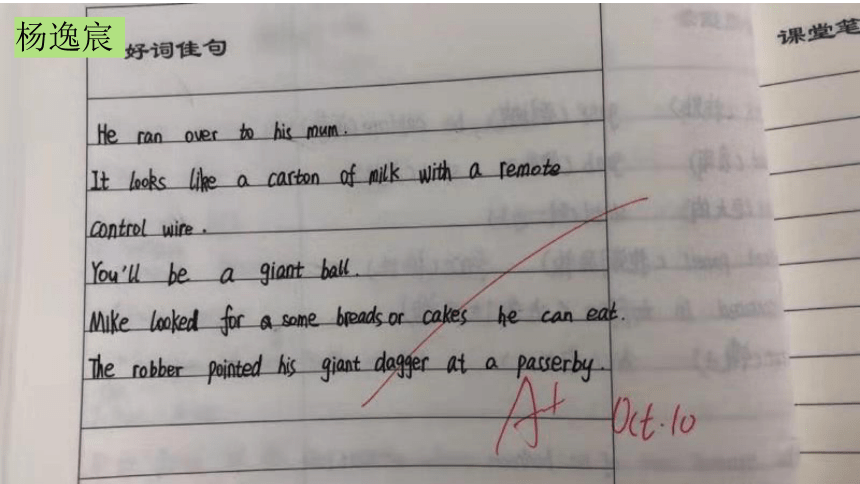 杨逸宸
好词佳句
课堂笔
He ran over to his mum.
It looks like a carton of milk with a remote
control wire.
You'll be a giant ball.
Mike looked for a some breads or cakes he can eat.
The robber pointed his giant dagger at a passerby.
A+
Oct.10